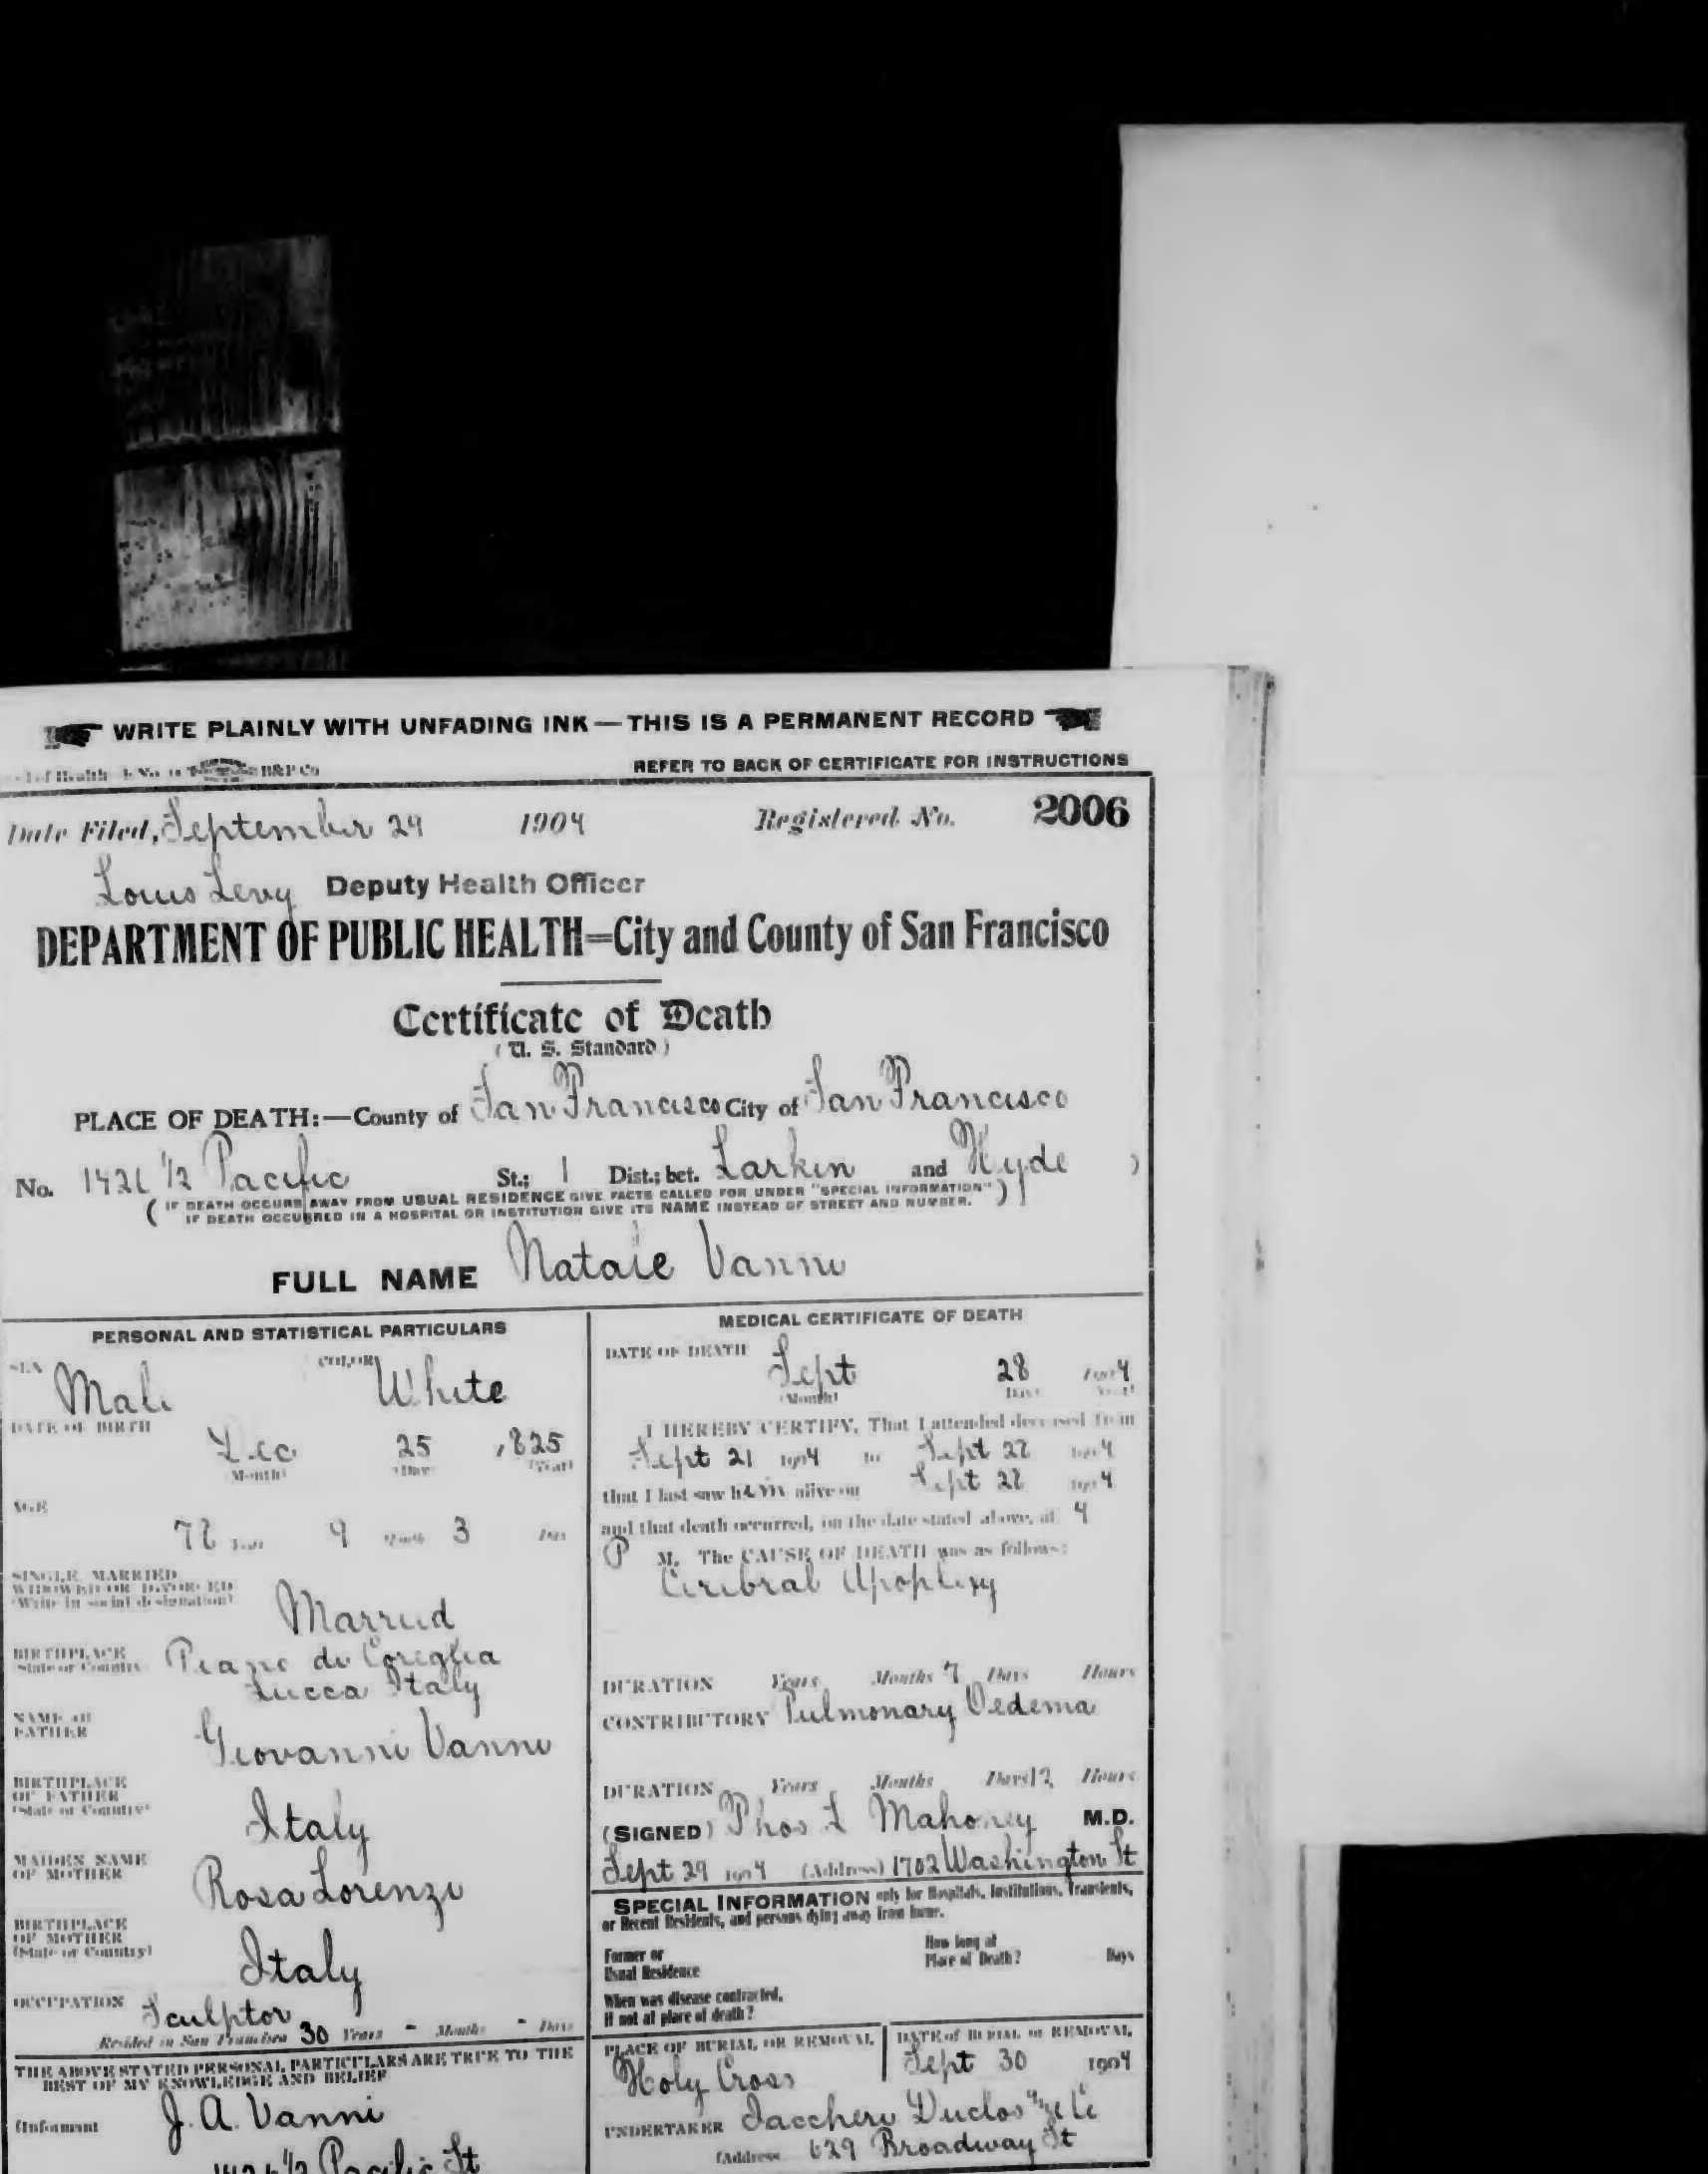 WRITE PLAINLY WITH UNFADING INK — THIS IS A PERMANENT RECORD
of Health B&P Co
REFER TO BACK OF CERTIFICATE FOR INSTRUCTIONS
Date Filed, September 29 1904 Registered No. 2006
Louis Levy Deputy Health Officer
DEPARTMENT OF PUBLIC HEALTH=City and County of San Francisco
Certificate of Death
(U. S. Standard)
PLACE OF DEATH:—County of San Francisco City of San Francisco
No. 1426 1/2 Pacific St.; 1 Dist.; bet. Larkin and Hyde )
( IF DEATH OCCURS AWAY FROM USUAL RESIDENCE GIVE FACTS CALLED FOR UNDER "SPECIAL INFORMATION" )
IF DEATH OCCURRED IN A HOSPITAL OR INSTITUTION GIVE ITS NAME INSTEAD OF STREET AND NUMBER.
FULL NAME Natale Vanni
PERSONAL AND STATISTICAL PARTICULARS
SEX Male COLOR White
DATE OF BIRTH
Dec 25 1825
(Month) (Day) (Year)
AGE
78 Years 9 Months 3 Days
SINGLE, MARRIED
WIDOWED OR DIVORCED
(Write in social designation)
Married
BIRTHPLACE
(State or Country)
Piano di Coreglia
Lucca Italy
NAME OF
FATHER
Giovanni Vanni
BIRTHPLACE
OF FATHER
(State or Country)
Italy
MAIDEN NAME
OF MOTHER
Rosa Lorenzi
BIRTHPLACE
OF MOTHER
(State or Country)
Italy
OCCUPATION Sculptor
Resided in San Francisco 30 Years - Months - Days
THE ABOVE STATED PERSONAL PARTICULARS ARE TRUE TO THE
BEST OF MY KNOWLEDGE AND BELIEF
(Informant J. A. Vanni
1426 1/2 Pacific St
MEDICAL CERTIFICATE OF DEATH
DATE OF DEATH
Sept 28 1904
(Month) (Day) (Year)
I HEREBY CERTIFY, That I attended deceased from
Sept 21 1904 to Sept 28 1904
that I last saw him alive on Sept 28 1904
and that death occurred, on the date stated above, at 4
P M. The CAUSE OF DEATH was as follows:
Cerebral Apoplexy
DURATION Years Months 7 Days Hours
CONTRIBUTORY Pulmonary Oedema
DURATION Years Months Days 12 Hours
(SIGNED) Thos L Mahoney M.D.
Sept 29 1904 (Address) 1702 Washington St
SPECIAL INFORMATION only for Hospitals, Institutions, Transients,
or Recent Residents, and persons dying away from home.
Former or
Usual Residence
How long at
Place of Death? Days
When was disease contracted,
If not at place of death?
PLACE OF BURIAL OR REMOVAL
Holy Cross
DATE of BURIAL or REMOVAL
Sept 30 1904
UNDERTAKER Iaccheri Duclos
(Address 629 Broadway St